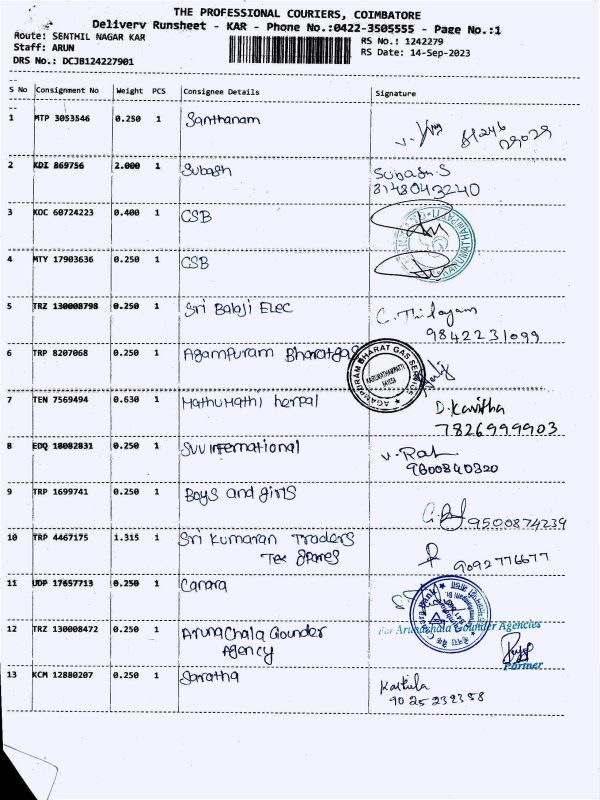 THE PROFESSIONAL COURIERS, COIMBATORE
Delivery Runsheet - KAR - Phone No.:0422-3505555 - Page No.:1
Route: SENTHIL NAGAR KAR
RS No.: 1242279
Staff: ARUN
RS Date: 14-Sep-2023
DRS No.: DCJB124227901
S No Consignment No Weight PCS Consignee Details Signature
1 MTP 3053546 0.250 1 Santhanam
2 KDI 869756 2.000 1 Subash Subash.S
8148043240
3 KOC 60724223 0.400 1 CSB
4 MTY 17903636 0.250 1 CSB
5 TRZ 130008798 0.250 1 Sri Balaji Elec C. Thilagam
9842231099
6 TRP 8207068 0.250 1 Agampuram Bharatgas
AGAMPURAM BHARAT GAS SERVICE
7 TEN 7569494 0.630 1 Mathumathi herpal D.Kavitha
7826999903
8 EDQ 18082831 0.250 1 SVV International
9600840320
9 TRP 1699741 0.250 1 Boys and girls 9500874239
10 TRP 4467175 1.315 1 Sri Kumaran Traders
Tex Spares 9092776677
11 UDP 17657713 0.250 1 Canara
For Arunachala Gounder Agencies
12 TRZ 130008472 0.250 1 Arunachala Gounder
Agency
Partner
13 KCM 12880207 0.250 1 Saratha Karthila
9025239358